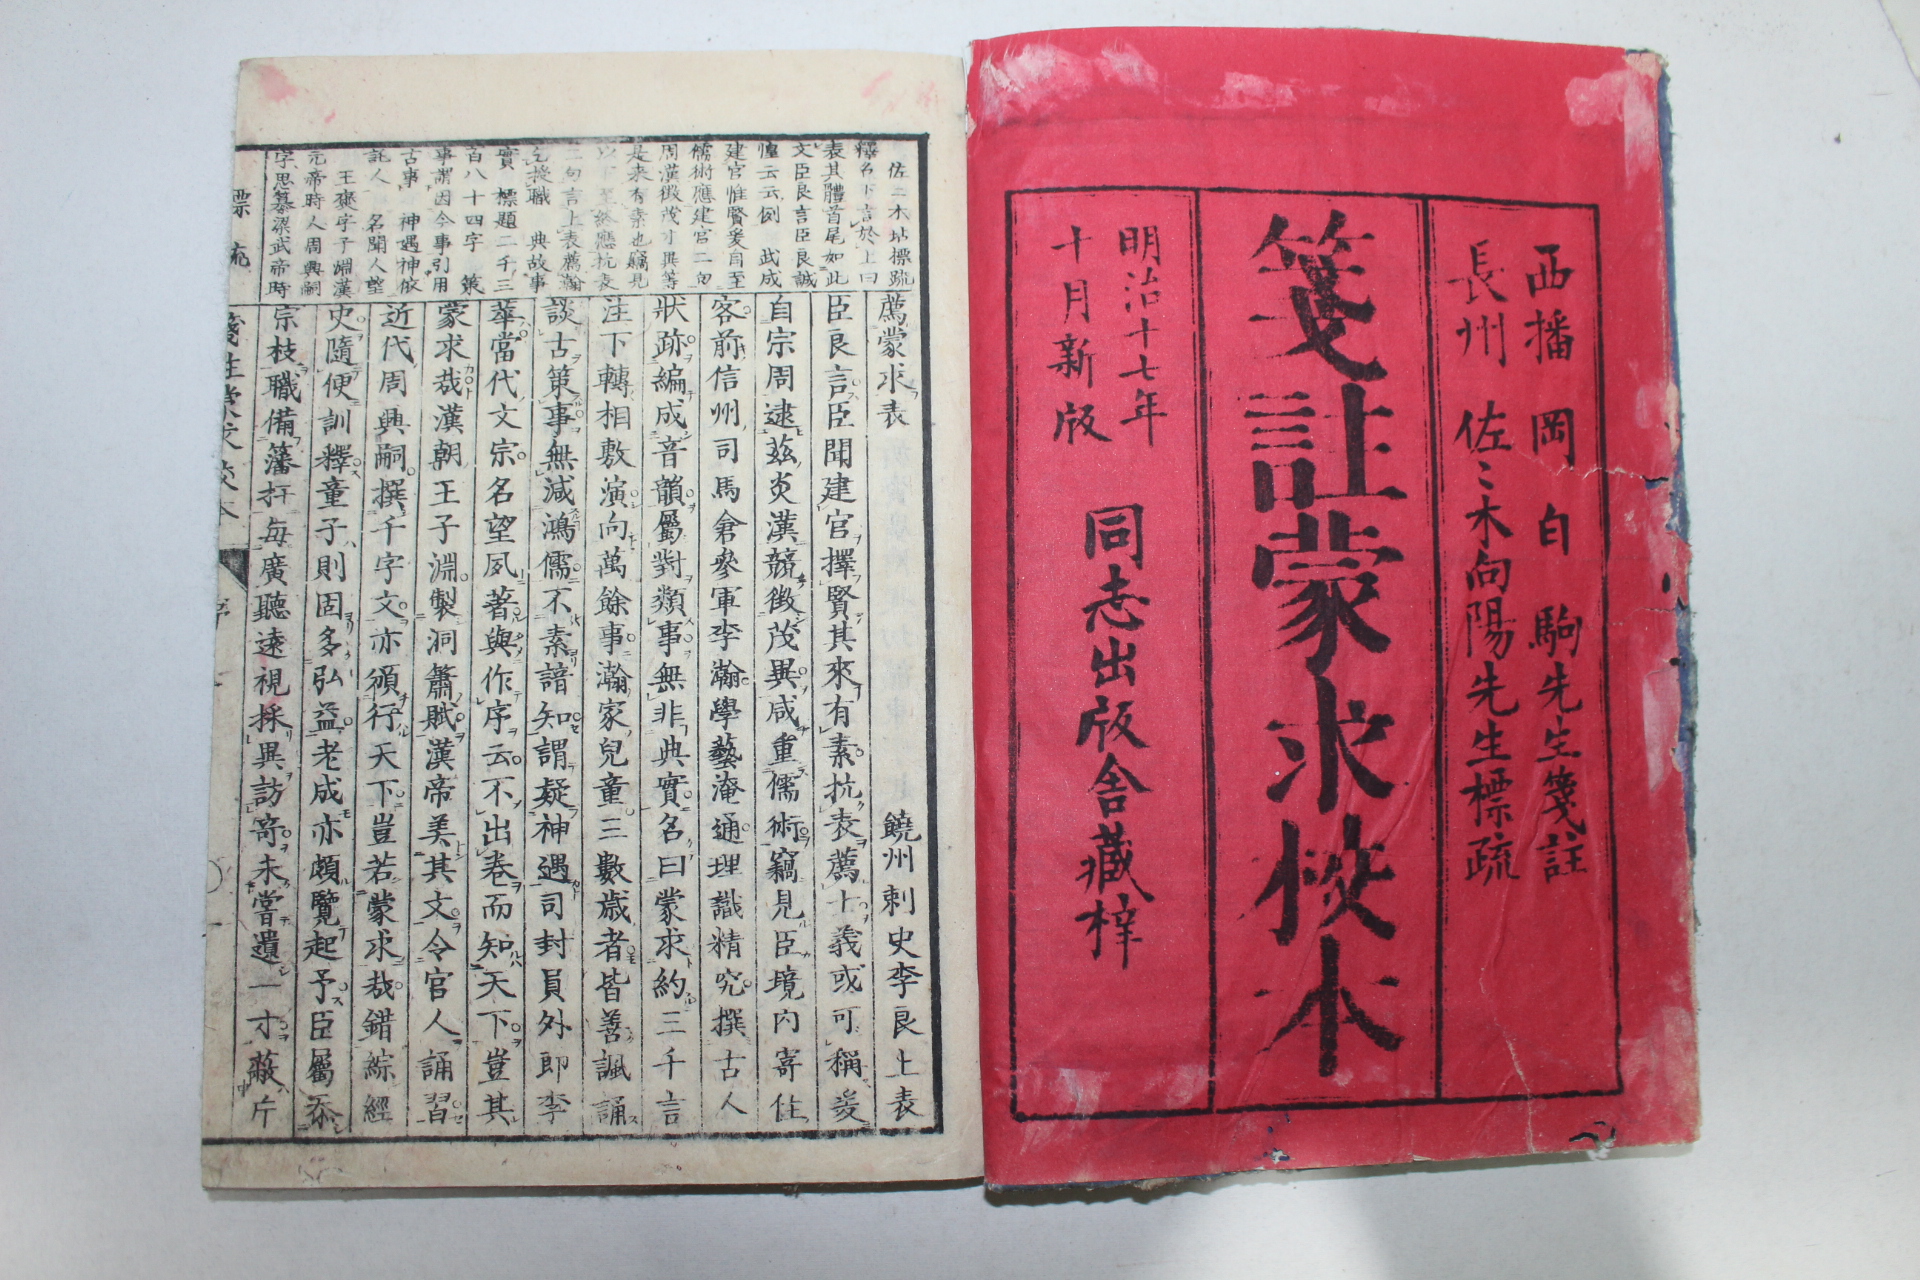 西播 岡 白 駒先生箋註
長州 佐々木向陽先生標疏
箋註蒙求校本
明治十七年
十月新版
同志出版舎藏梓
佐々木坫標疏
釋名下言於上曰
表其體首尾如此
文臣良言臣良誠
惶云云例 武成
建官惟賢爰自至
儒術應建官二句
周漢徴茂才異等
是来有素也竊見
以下至終應抗表
二句言上表薦瀚
乞授職 典故事
實 標題二千三
百八十四字 策
事謂因今事引用
古事 神遇神依
託人 名聞人望
王襃字子淵漢
元帝時人周興嗣
字思纂梁武帝時
薦蒙求表 饒州刺史李良上表
臣良言臣聞建官擇賢其來有素抗表薦士義或可稱爰
自宗周逮茲炎漢競徴茂異咸重儒術竊見臣境内寄住
客前信州司馬倉參軍李瀚學藝淹通理識精究撰古人
狀跡編成音韻屬對類事無非典實名曰蒙求約三千言
注下轉相敷演向萬餘事瀚家兒童三數歳者皆善諷誦
談古策事無減鴻儒不素諳知謂疑神遇司封員外郎李
華當代文宗名望夙著與作序云不出卷而知天下豈其
蒙求哉漢朝王子淵製洞簫賦漢帝美其文令官人誦習
近代周興嗣撰千字文亦頒行天下豈若蒙求哉錯綜經
史隨便訓釋童子則固多弘益老成亦頗覽起予臣屬忝
宗枝職備藩扞毎廣聽遠視採異訪竒未嘗遺一才蔽片
標疏
箋註蒙求校本
序
一